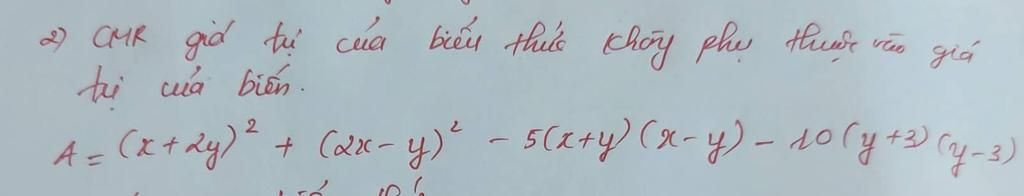 2) CMR giá trị của biểu thức không phụ thuộc vào giá
trị của biến.
A = (x + 2y)² + (2x - y)² - 5(x+y)(x-y) - 10(y+3)(y-3)